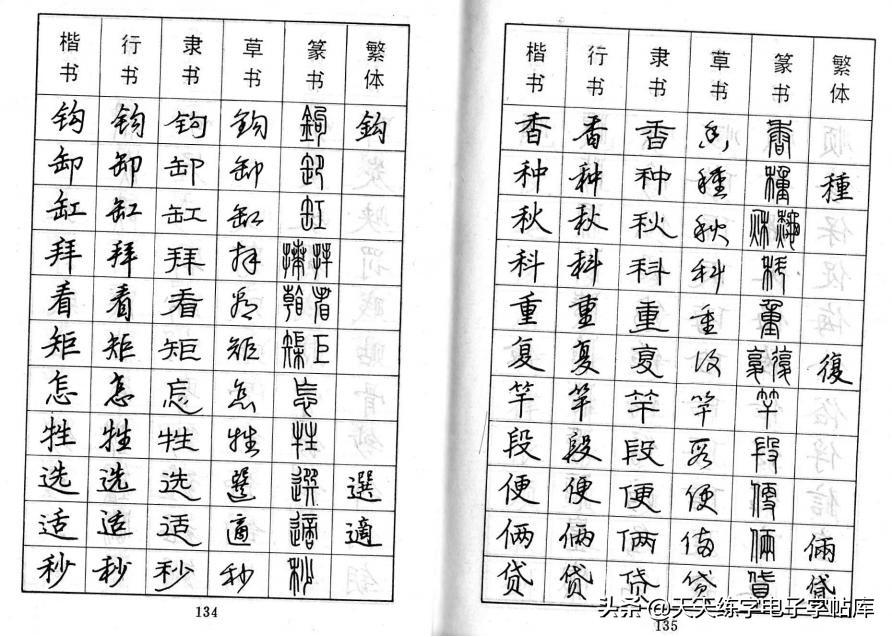 楷书 行书 隶书 草书 篆书 繁体
钩 钩 钩 鈎 鉤 鈎
卸 卸 卸 卸 卸
缸 缸 缸 缸 缸
拜 拜 拜 拜
看 看 看 看
矩 矩 矩 矩 巨
怎 怎 怎 怎 怎
牲 牲 牲 牲 牲
选 选 选 選 選 選
适 适 适 適 適 適
秒 秒 秒 秒 秒
134
楷书 行书 隶书 草书 篆书 繁体
香 香 香 香 香
种 种 种 種 種 種
秋 秋 秋 秋 秋
科 科 科 科 科
重 重 重 重 重
复 复 复 复 復 復
竿 竿 竿 竿 竿
段 段 段 段 段
便 便 便 便 便
俩 俩 俩 俩 倆 倆
贷 贷 贷 贷 貸 貸
135
头条 @天天练字电子字帖库